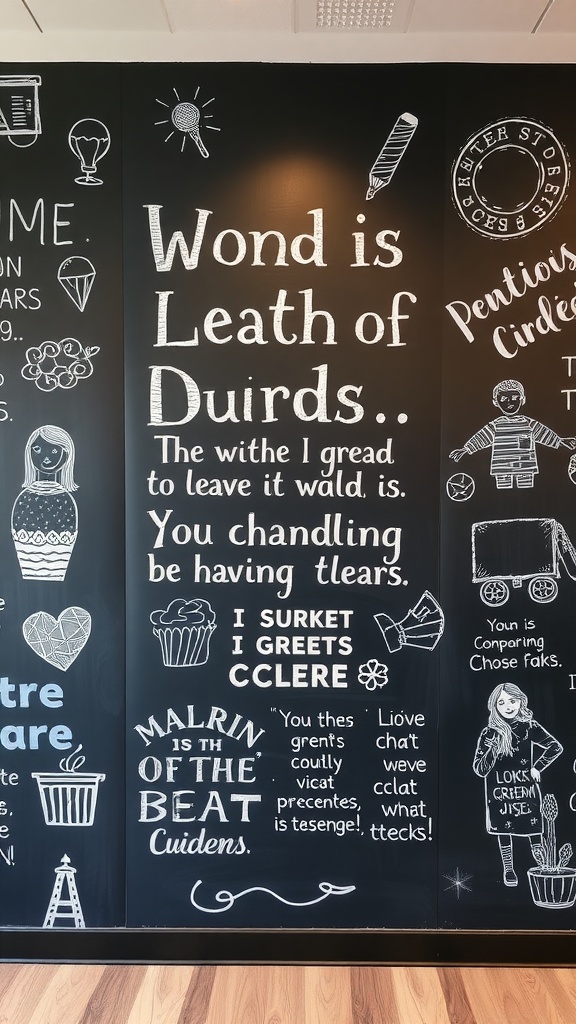 UME.
ON
ARS
9..
S.
tre
are
te
s.
e
N!
Wond is
Leath of
Duirds..
The withe I gread
to leave it wald, is.
You chandling
be having tlears.
I SURKET
I GREETS
CCLERE
MALRIN
IS TH
OF THE"
BEAT
Cuidens.
"You thes
gren's
coutly
vicat
precentes,
is tesenge!,
Liove
cha't
weve
cclat
what
ttecks!
Pentiois
Cirdéc
T
T
Youn is
Conporing
Chose faks.
LOKK
GREEWN
JISE.